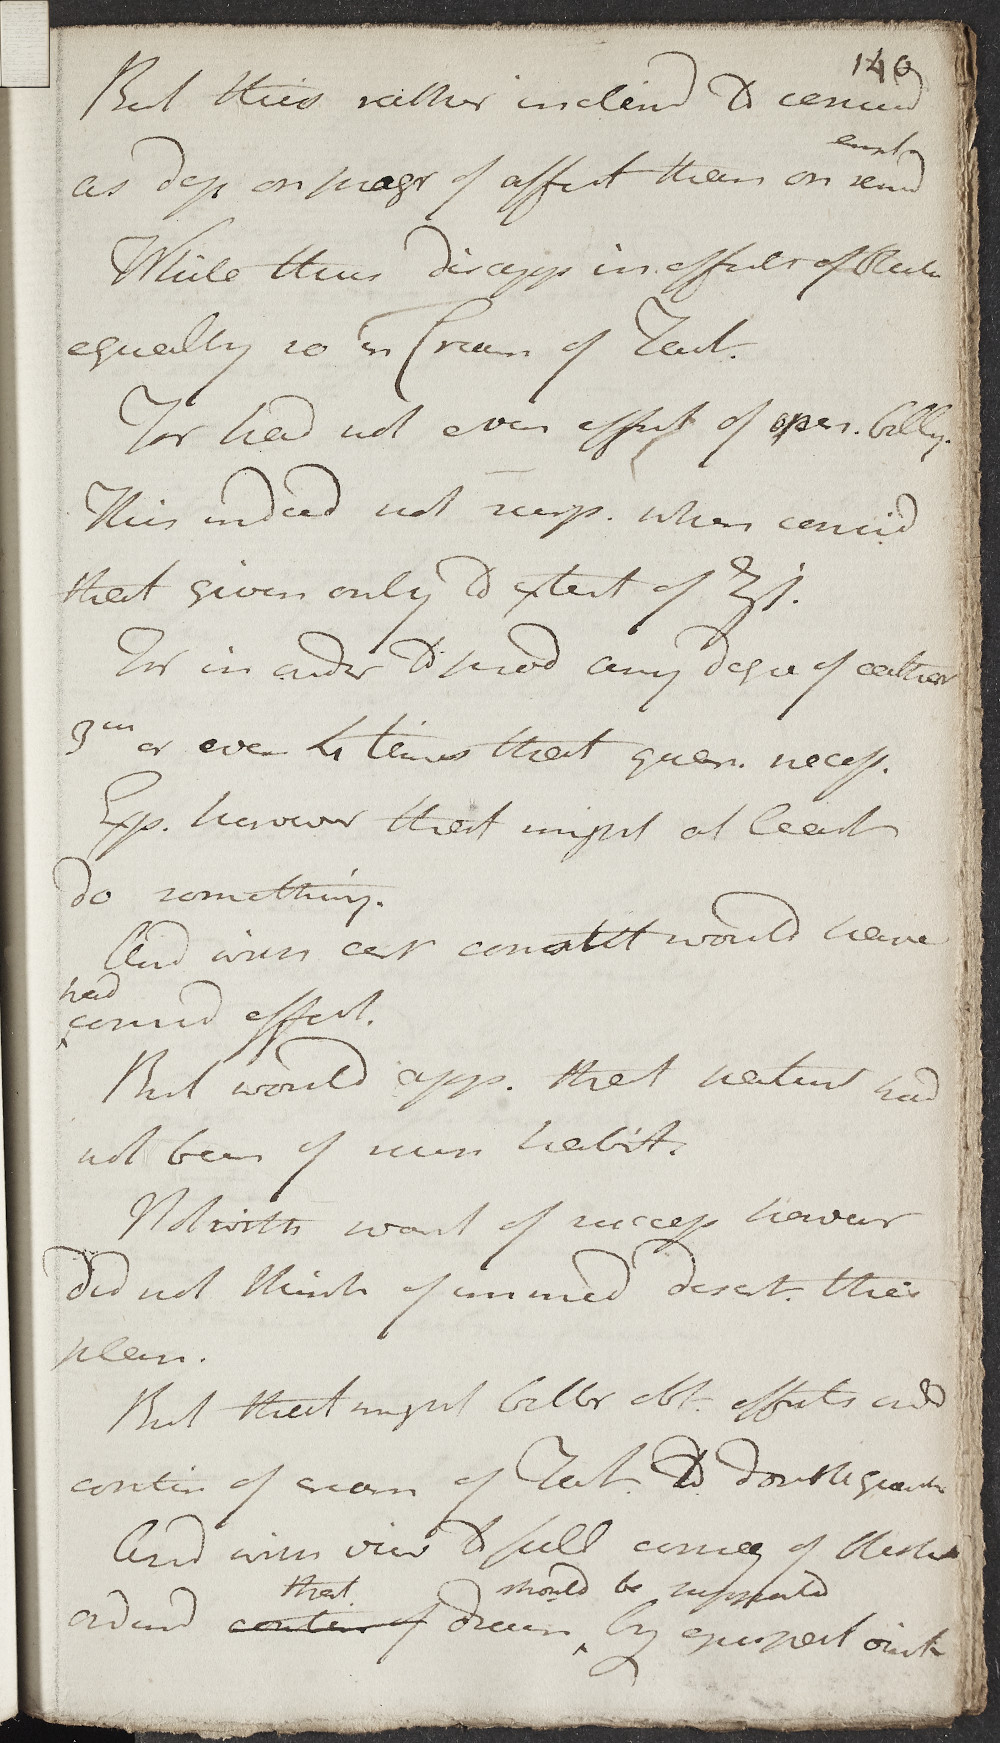 140
But this rather inclind to consid
as dep on progr of affect than on remd
While thus disapp in effects of Blister
equally so in Cream of Tart.
For had not even effect of open. belly.
This indeed not surp. when consid
that given only to extent of ʒj.
For in order to prod any degree of cathar
3 or even 4 times that quan. necess.
Exp. however that might at least
do something.
And with cert constit would have
had consid effect.
But would app. that patient had
not been of such habit.
Notwith want of success however
did not think of immed desert. this
plan.
But that might better obt. effects ordd
contin of cream of Tart. to double quan
And with view to full conseq of blister
ordered that drain should be supported by epispast oint